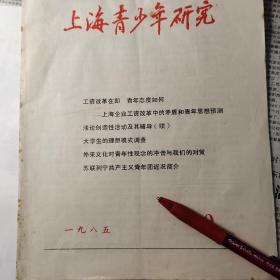 上海青少年研究
工资改革在即 青年态度如何
——上海企业工资改革中的矛盾和青年思想预测
浅论创造性活动及其辅导(续)
大学生的理想模式调查
外来文化对青年性观念的冲击与我们的对策
苏联列宁共产主义青年团近况简介
一九八五